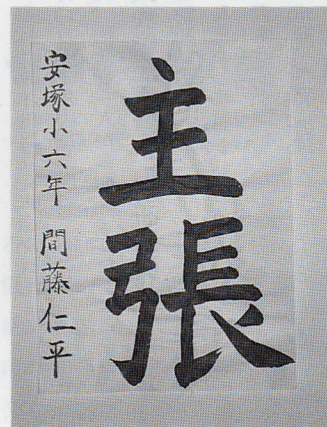 主張
安塚小六年 間藤仁平